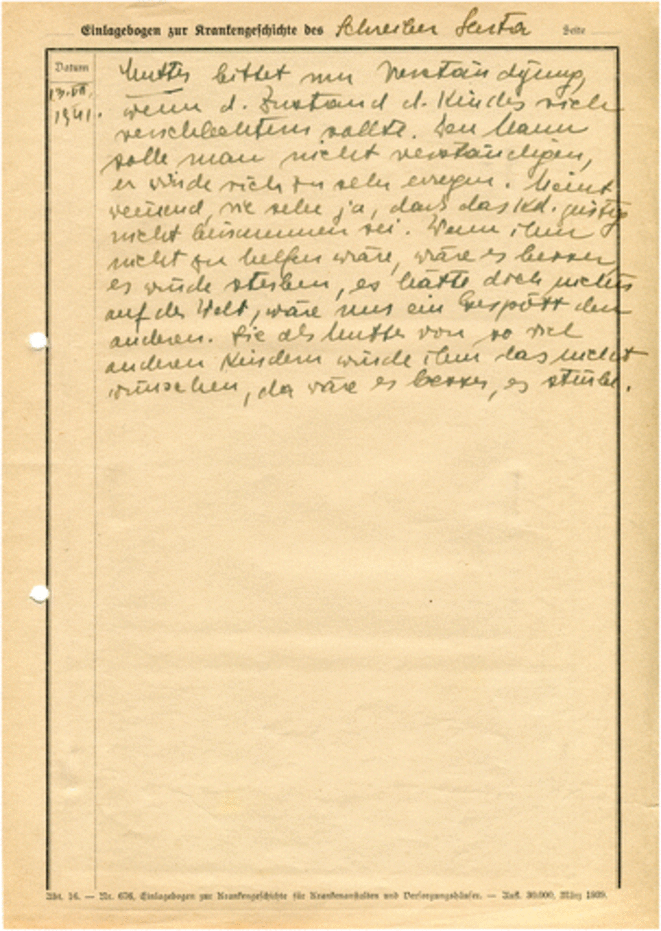 Einlagebogen zur Krankengeschichte des Schreiber Herta Seite
Datum
1941.
Mutter bittet um Verständigung,
wenn d. Zustand d. Kindes sich
verschlechtern sollte. Den Mann
solle man nicht verständigen,
er würde sich zu sehr erregen. Meint
weinend, sie sehe ja, dass das Kd. geistig
nicht beisammen sei. Wenn ihm
nicht zu helfen wäre, wäre es besser,
es würde sterben, es hätte doch nichts
auf der Welt, wäre nur ein Gespött den
anderen. Sie als Mutter von so viel
anderen Kindern würde ihm das nicht
wünschen, da wäre es besser, es stürbe.
Abt. 16. — Nr. 676, Einlagebogen zur Krankengeschichte für Krankenanstalten und Versorgungshäuser. — Aufl. 30.000, März 1939.